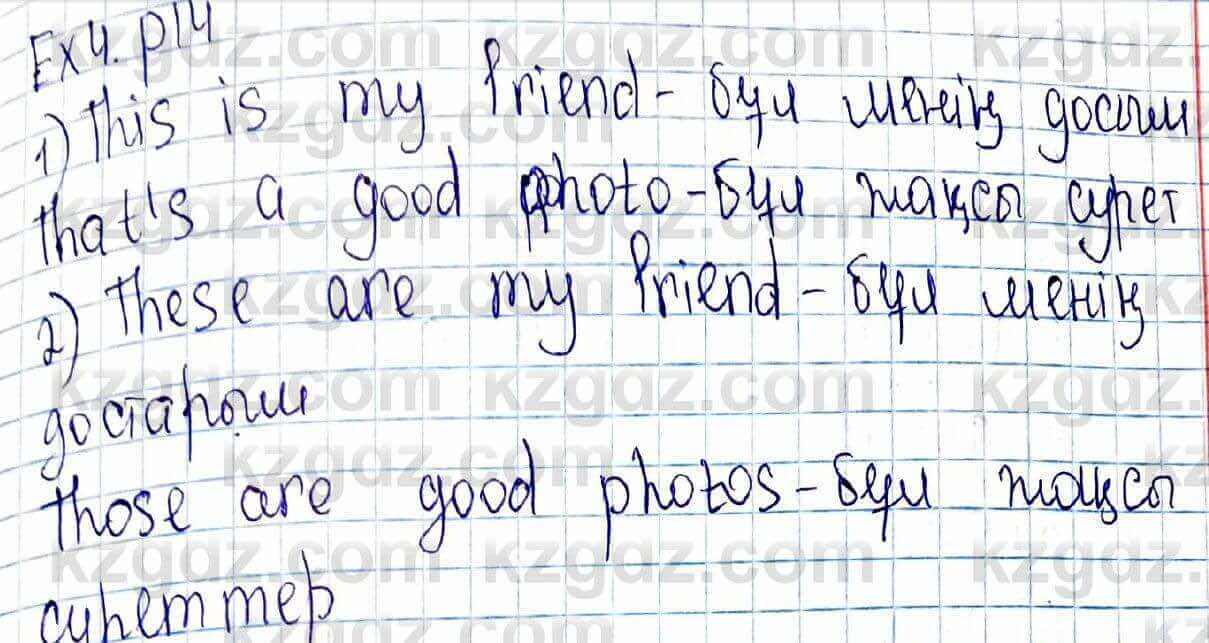 Ex4. p14
1) This is my friend - бұл менің досым
that's a good photo - бұл жақсы сурет
2) These are my friend - бұл менің
достарым
Those are good photos - бұл жақсы
суреттер
kzgdz.com